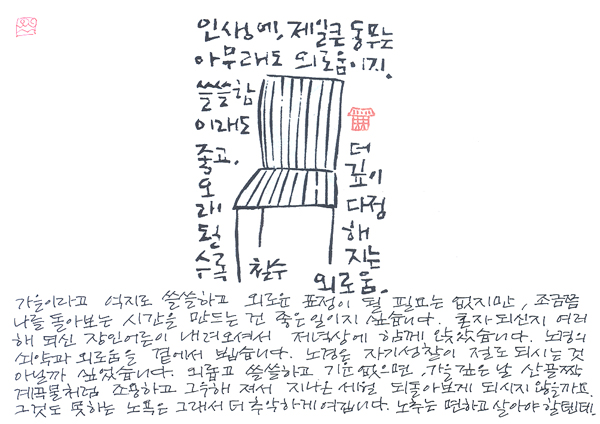 인생에, 제일큰 동무는
아무래도 외로움이지.
쓸쓸함
이래도
좋고.
오
래
된
수록
더
깊이
다정
해
지는
외로움.
철수
가을이라고 억지로 쓸쓸하고 외로운 표정이 될 필요는 없지만, 조금쯤
나를 돌아보는 시간을 만드는 건 좋은일이지 싶습니다. 혼자되신지 여러
해 되신 장인어른이 내려오셔서 저녁상에 함께 앉았습니다. 노경의
쇠약과 외로움을 곁에서 봅습니다. 노경은 자기성찰이 절로 되시는 것
아닐까 싶었습니다. 외롭고 쓸쓸하고 기운없으면, 가을깊은 날 산골짝
계곡물처럼 조용하고 그윽해 져서 지나온 세월 되돌아보게 되시지 않을까고.
그것도 못하는 노욕은 그래서 더 추악하게 여깁니다. 노추는 면하고 살아야 할텐데